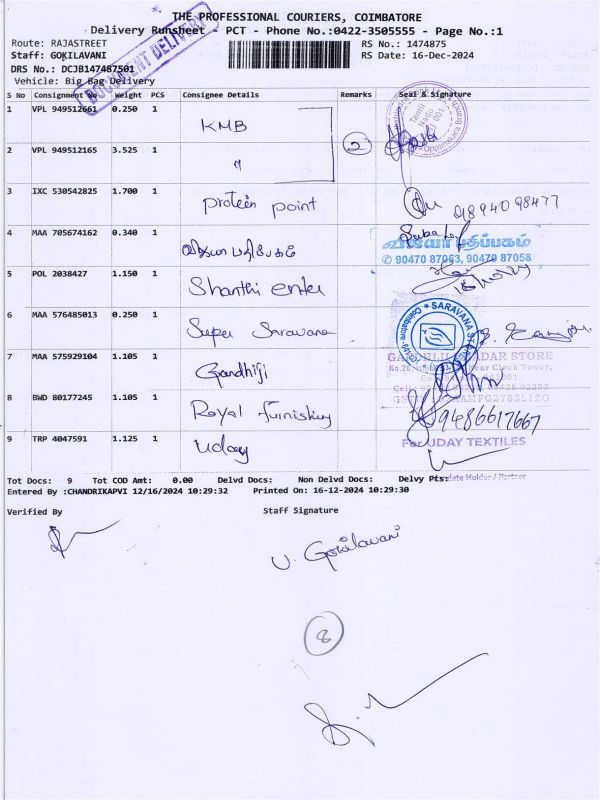 THE PROFESSIONAL COURIERS, COIMBATORE
Delivery Runsheet - PCT - Phone No.:0422-3505555 - Page No.:1
Route: RAJASTREET RS No.: 1474875
Staff: GOKILAVANI RS Date: 16-Dec-2024
DRS No.: DCJB147487501
Vehicle: Big Bag Delivery
DOCUMENT DELIVERY
S No Consignment No Weight PCS Consignee Details Remarks Seal & Signature
1 VPL 949512661 0.250 1 KMB
2 VPL 949512165 3.525 1 " 2
3 IXC 530542825 1.700 1 protein point 9894098477
4 MAA 705674162 0.340 1 விஜயா பதிப்பகம்
விஜயா பதிப்பகம்
✆ 90470 87053, 90470 87058
5 POL 2038427 1.150 1 Shanthi enter
6 MAA 576485013 0.250 1 Super Saravana
SARAVANA
7 MAA 575929104 1.105 1 Gandhiji
8 BWD 80177245 1.105 1 Royal furnishing 9486617667
9 TRP 4047591 1.125 1 Uday
For UDAY TEXTILES
Holder / Partner
Tot Docs: 9 Tot COD Amt: 0.00 Delvd Docs: Non Delvd Docs: Delvy Pts:
Entered By :CHANDRIKAPVI 12/16/2024 10:29:32 Printed On: 16-12-2024 10:29:30
Verified By Staff Signature
U. Gokilavani
8